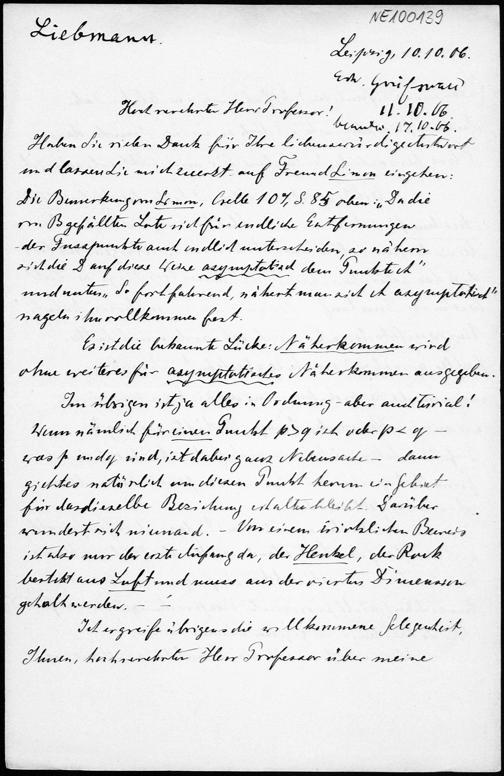 NE100139
Liebmann.
Leipzig, 10.10.06.
Erh. Greifswald
11.10.06
beantw. 17.10.06.
Hochverehrter Herr Professor!
Haben Sie vielen Dank für Ihre liebenswürdige Antwort
und lassen Sie mich zuerst auf Freund Simon eingehen:
Die Bemerkung von Simon, Crelle 107, S. 85 oben: „Da die
von B gefällten Lote sich für endliche Entfernungen
der Fusspunkte auch endlich unterscheiden, so nähern
sich die D auf diese Weise asymptotisch dem Punkte A"
und unten „So fortfahrend, nähert man sich A asymptotisch"
nageln ihn vollkommen fest.
Es ist die bekannte Lücke: Näherkommen wird
ohne weiteres für asymptotisches Näherkommen ausgegeben.
Im übrigen ist ja alles in Ordnung - aber auch trivial!
Wenn nämlich für einen Punkt p > q ist oder p < q -
was p und q sind, ist dabei ganz Nebensache - dann
giebt es natürlich um diesen Punkt herum ein Gebiet
für das dieselbe Beziehung erhalten bleibt. Darüber
wundert sich niemand. - Von einem wirklichen Beweis
ist also nur der erste Anfang da, der Henkel, der Rock
besteht aus Luft und muss aus der vierten Dimension
geholt werden. - -
Ich ergreife übrigens die willkommene Gelegenheit,
Ihnen, hochverehrter Herr Professor über meine